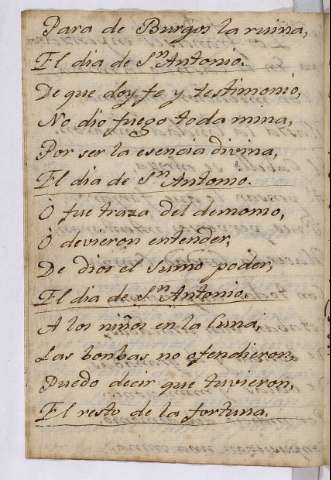 Para de Burgos la ruina,
El dia de Sn. Antonio.
De que doy fe y testimonio,
No dio fuego toda mina,
Por ser la esencia divina,
El dia de Sn. Antonio.
O fue traza del demonio,
O devieron entender,
De dios el sumo poder,
El dia de Sn. Antonio.
A los niños en la Cuna,
Las bonbas no ofendieron,
Puedo decir que tuvieron,
El resto de la fortuna.